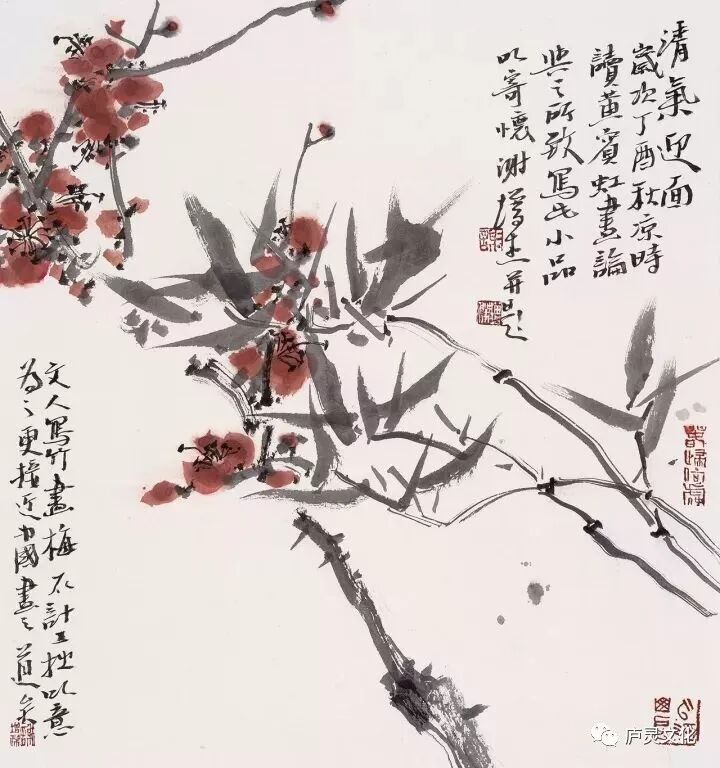 清氣迎面
歲次丁酉秋凉時
讀黃賓虹畫論
興之所致寫此小品
以寄懷謝增杰并題
文人寫竹畫梅不計工拙以意
为之更接近中國畫之道矣
庐灵文化